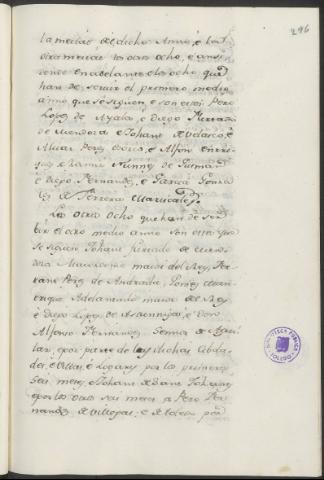 296
la meitad de dicho Anno, è los
otra meitad los otros ocho, è ansi
dende en adelante è los ocho, que
han de servir el primero medio
anno que se siguen, è son estos: Pero
Lopez de Ayala, è Diego Hurtado
de Mendoza è Johan de Velasco, è
Alvar Perez Osorio, è Alfon Enrri-
quez è Ramir Nunnez de Guzman
è Diego Fernandez, è Garcia Gonza-
lez de Ferrera Mariscales.
Los otros Ocho que han de ser-
bir el otro medio anno son estos que
se siguen Johan Furtado de Men-
doza Mayordomo maior del Rey, Fer-
rand Perez de Andrada, Gomez Man-
rrique Adelantado maior de
è Diego Lopez de Astunniga, è Don
Alfonso Fernandez Sennor de Agui-
lar, è por parte de las dichas Cibda-
des, è Villas, è Logares por los primeros
seis meses, è Johan de
è por los otros seis meses a Pero Fer-
nandez de Villegas, è de
BIBLIOTECA PÚBLICA
TOLEDO